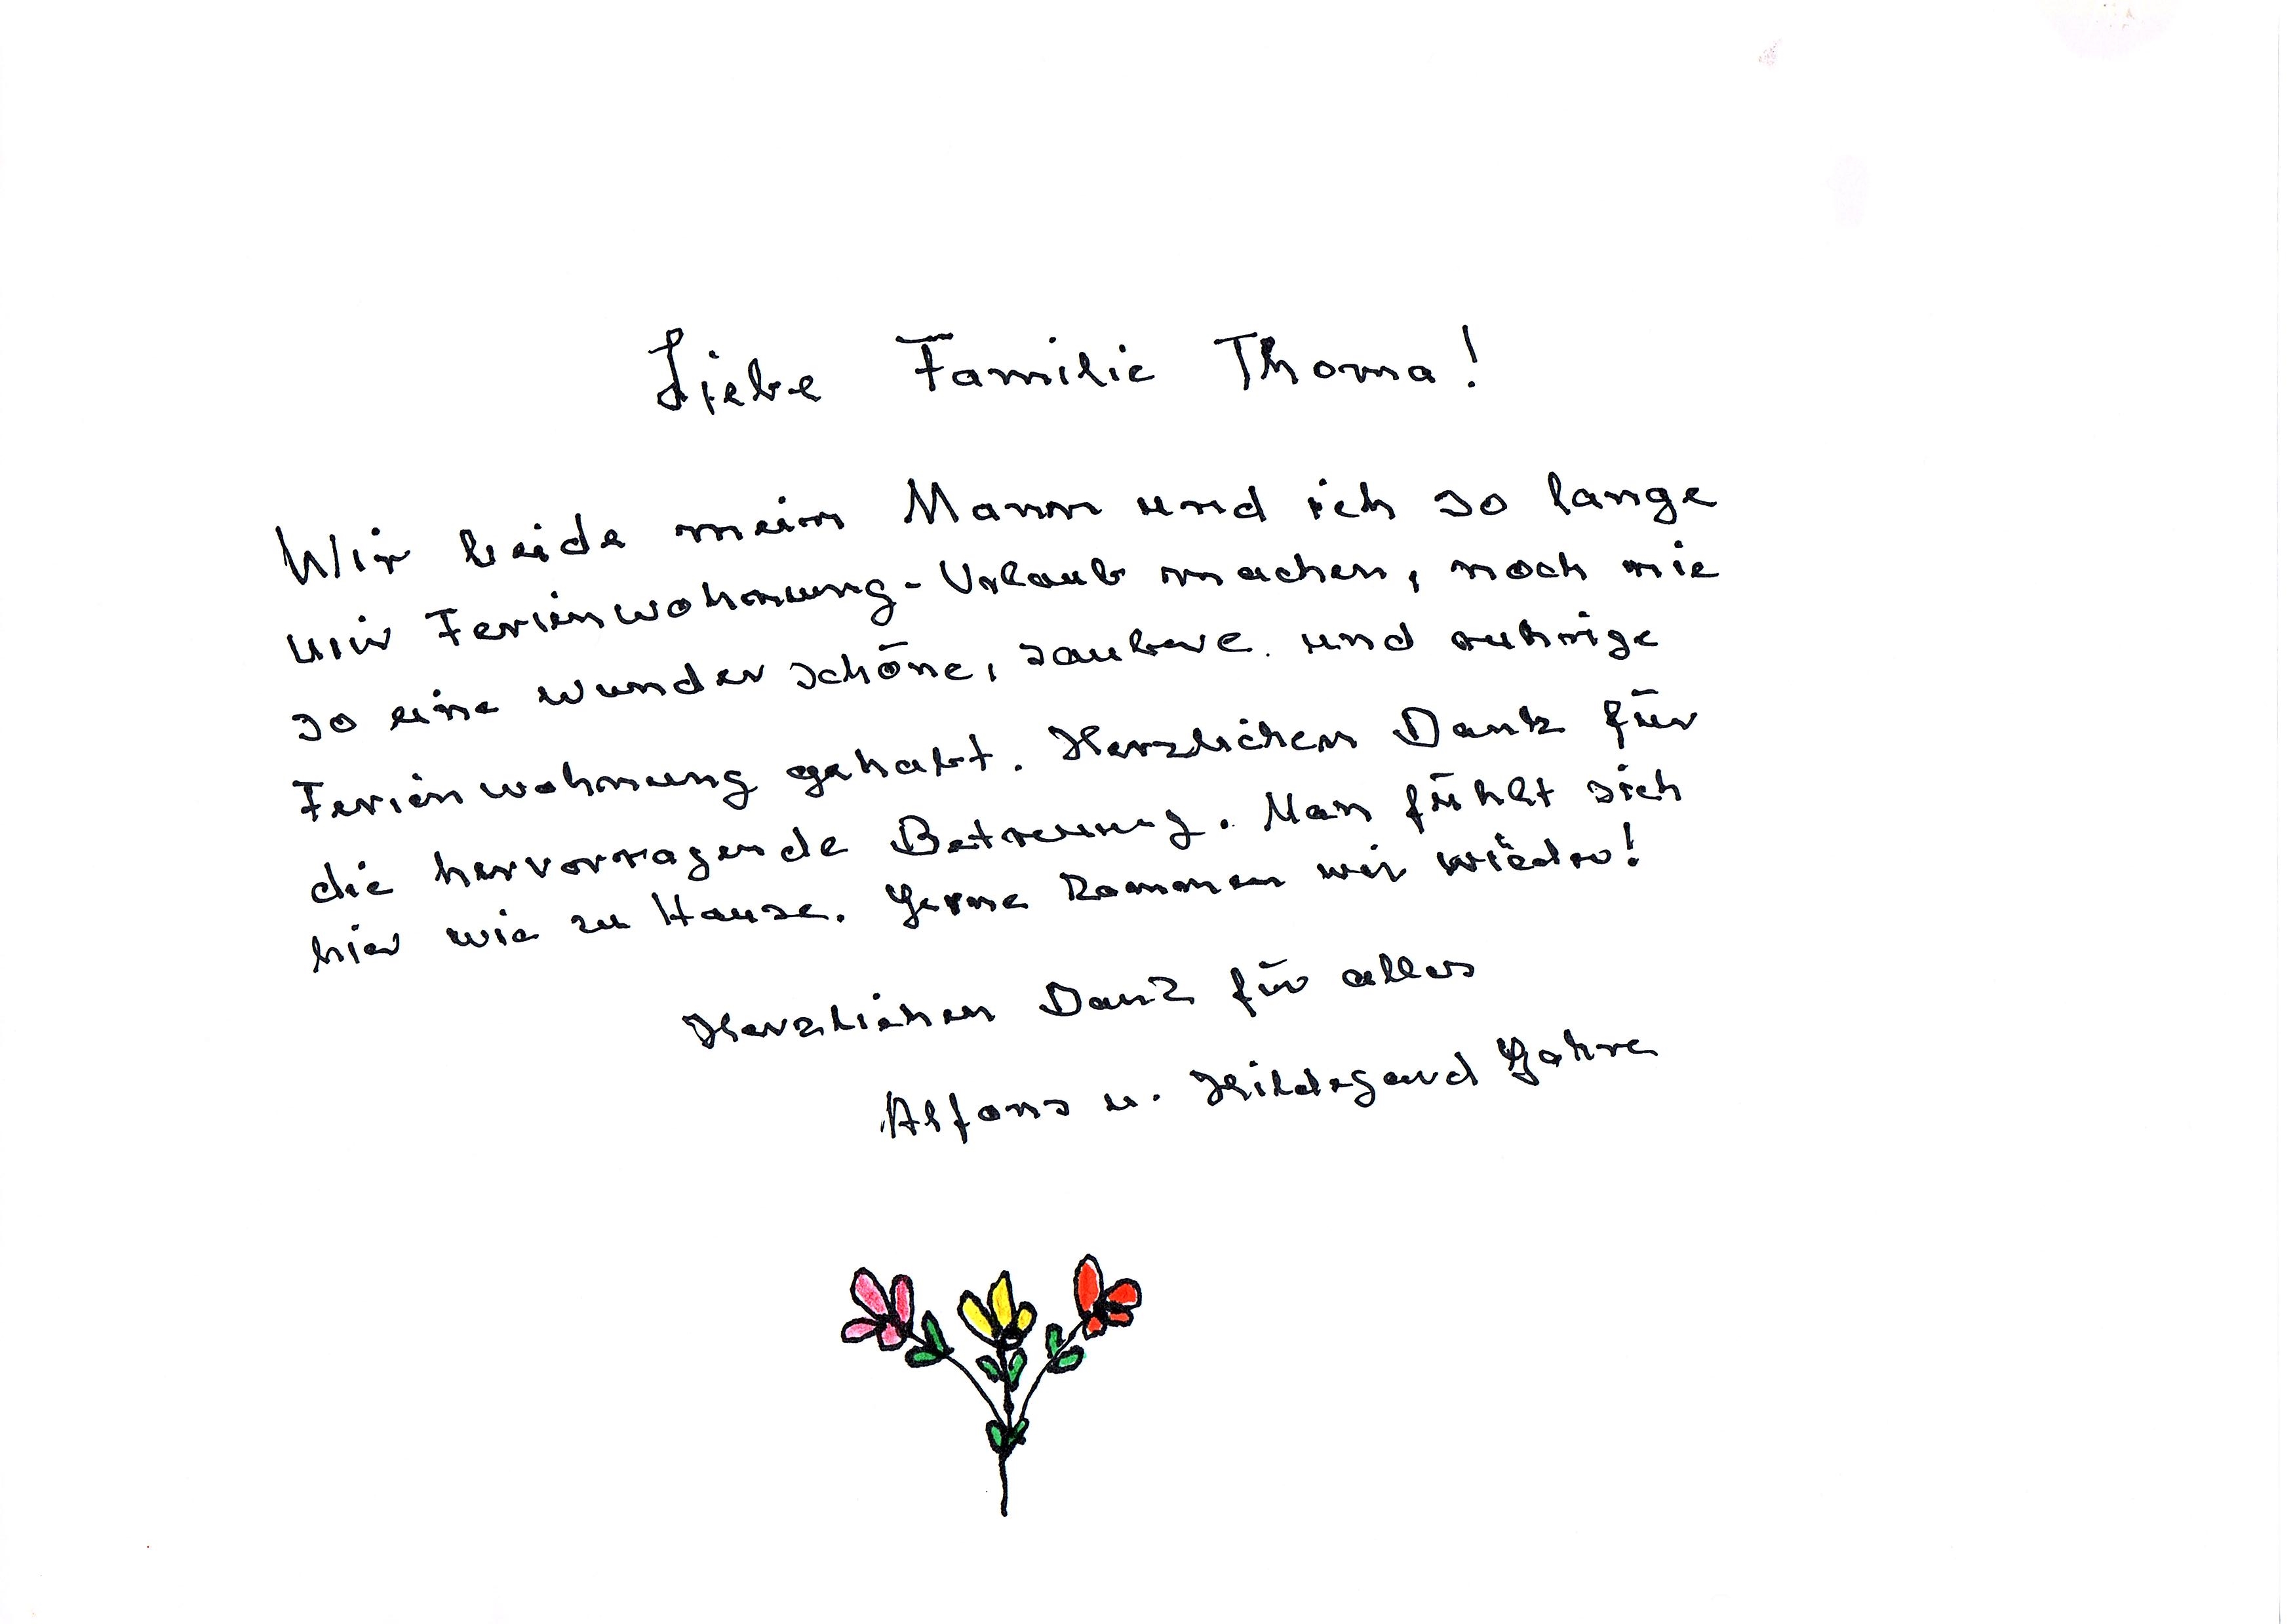 Liebe Familie Thoma!
Wir beide mein Mann und ich so lange
wir Ferienwohnung-Urlaub machen, noch nie
so eine wunderschöne, saubere und ruhrige
Ferienwohnung gehabt. Herzlichen Dank für
die hervorragende Betreuung. Man fühlt sich
hier wie zu Hause. Gerne kommen wir wieder!
Herzlichen Dank für alles
Alfons u. Hildegard